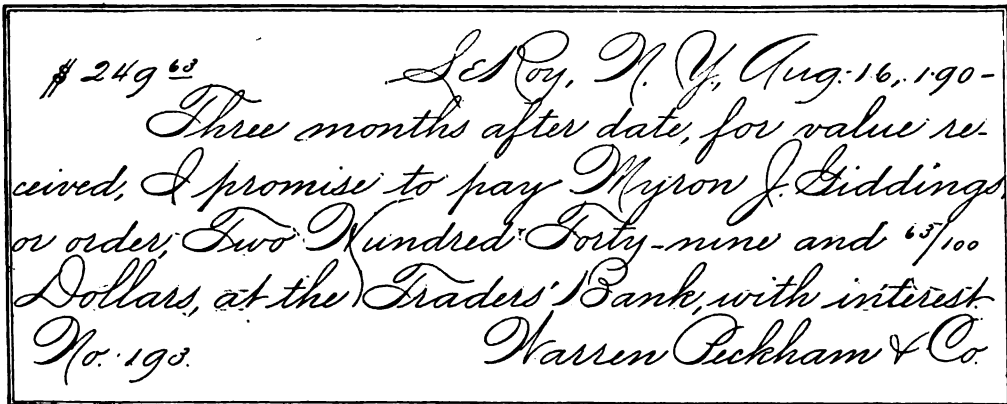 $249 63 LeRoy, N. Y., Aug. 16, 190-
Three months after date, for value re-
ceived, I promise to pay Myron J. Giddings,
or order, Two Hundred Forty-nine and 63/100
Dollars, at the Traders' Bank, with interest
No. 193. Warren Peckham & Co.